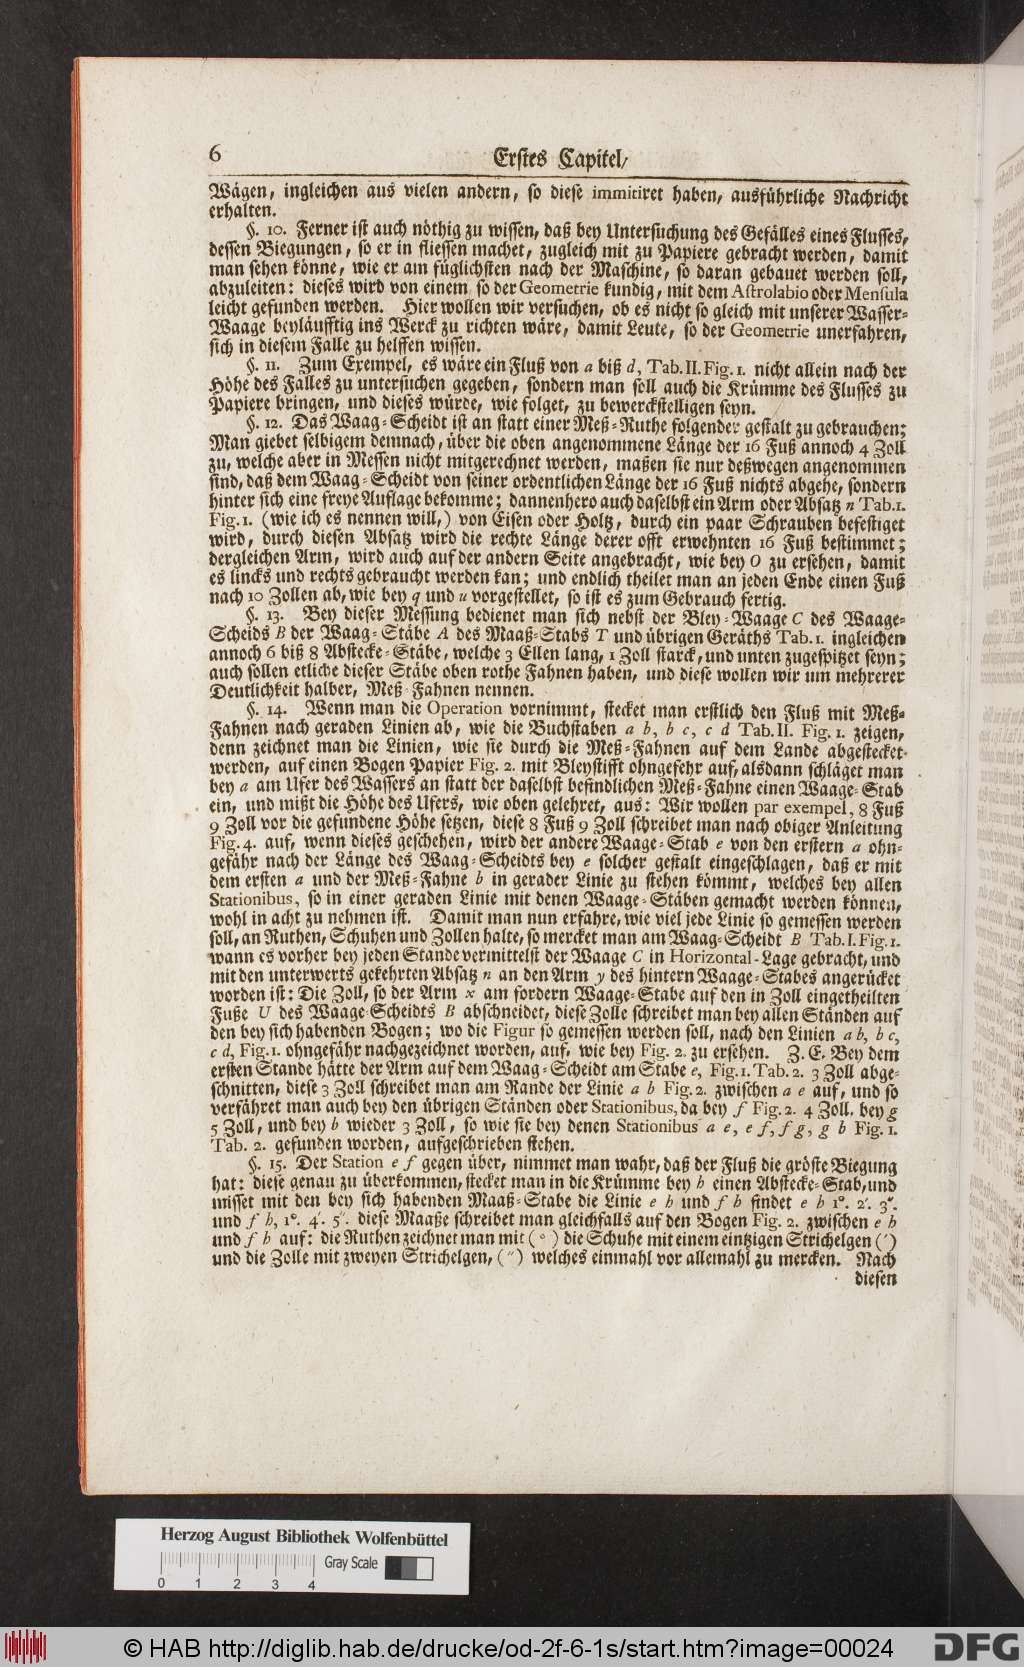 6 Erstes Capitel/
Wägen, ingleichen aus vielen andern, so diese immitiret haben, ausführliche Nachricht
erhalten.
§. 10. Ferner ist auch nöthig zu wissen, daß bey Untersuchung des Gefälles eines Flusses,
dessen Biegungen, so er in fliessen machet, zugleich mit zu Papiere gebracht werden, damit
man sehen könne, wie er am füglichsten nach der Maschine, so daran gebauet werden soll,
abzuleiten: dieses wird von einem so der Geometrie kundig, mit dem Astrolabio oder Mensula
leicht gefunden werden. Hier wollen wir versuchen, ob es nicht so gleich mit unserer Wasser-
Waage beyläufftig ins Werck zu richten wäre, damit Leute, so der Geometrie unerfahren,
sich in diesem Falle zu helffen wissen.
§. 11. Zum Exempel, es wäre ein Fluß von a biß d, Tab. II. Fig. 1. nicht allein nach der
Höhe des Falles zu untersuchen gegeben, sondern man soll auch die Krümme des Flusses zu
Papiere bringen, und dieses würde, wie folget, zu bewerckstelligen seyn.
§. 12. Das Waag-Scheidt ist an statt einer Meß-Ruthe folgender gestalt zu gebrauchen;
Man giebet selbigem demnach, über die oben angenommene Länge der 16 Fuß annoch 4 Zoll
zu, welche aber in Messen nicht mitgerechnet werden, maßen sie nur deßwegen angenommen
sind, daß dem Waag-Scheidt von seiner ordentlichen Länge der 16 Fuß nichts abgehe, sondern
hinter sich eine freye Auflage bekomme; dannenhero auch daselbst ein Arm oder Absatz n Tab. 1.
Fig. 1. (wie ich es nennen will,) von Eisen oder Holtz, durch ein paar Schrauben befestiget
wird, durch diesen Absatz wird die rechte Länge derer offt erwehnten 16 Fuß bestimmet;
dergleichen Arm, wird auch auf der andern Seite angebracht, wie bey O zu ersehen, damit
es lincks und rechts gebraucht werden kan; und endlich theilet man an jeden Ende einen Fuß
nach 10 Zollen ab, wie bey q und u vorgestellet, so ist es zum Gebrauch fertig.
§. 13. Bey dieser Messung bedienet man sich nebst der Bley-Waage C des Waage-
Scheids B der Waag-Stäbe A des Maaß-Stabs T und übrigen Geräths Tab. 1. ingleichen
annoch 6 biß 8 Abstecke-Stäbe, welche 3 Ellen lang, 1 Zoll starck, und unten zugespitzet seyn;
auch sollen etliche dieser Stäbe oben rothe Fahnen haben, und diese wollen wir um mehrerer
Deutlichkeit halber, Meß-Fahnen nennen.
§. 14. Wenn man die Operation vornimmt, stecket man erstlich den Fluß mit Meß-
Fahnen nach geraden Linien ab, wie die Buchstaben a b, b c, c d Tab. II. Fig. 1. zeigen,
denn zeichnet man die Linien, wie sie durch die Meß-Fahnen auf dem Lande abgestecket
werden, auf einen Bogen Papier Fig. 2. mit Bleystifft ohngefehr auf, alsdann schläget man
bey a am Ufer des Wassers an statt der daselbst befindlichen Meß-Fahne einen Waage-Stab
ein, und mißt die Höhe des Ufers, wie oben gelehret, aus: Wir wollen par exempel, 8 Fuß
9 Zoll vor die gefundene Höhe setzen, diese 8 Fuß 9 Zoll schreibet man nach obiger Anleitung
Fig. 4. auf, wenn dieses geschehen, wird der andere Waage-Stab e von den erstern a ohn-
gefähr nach der Länge des Waag-Scheidts bey e solcher gestalt eingeschlagen, daß er mit
dem ersten a und der Meß-Fahne b in gerader Linie zu stehen kömmt, welches bey allen
Stationibus, so in einer geraden Linie mit denen Waage-Stäben gemacht werden können,
wohl in acht zu nehmen ist. Damit man nun erfahre, wie viel jede Linie so gemessen werden
soll, an Ruthen, Schuhen und Zollen halte, so mercket man am Waag-Scheidt B Tab. I. Fig. 1.
wann es vorher bey jeden Stande vermittelst der Waage C in Horizontal-Lage gebracht, und
mit den unterwerts gekehrten Absatz n an den Arm y des hintern Waage-Stabes angerücket
worden ist: Die Zoll, so der Arm x am fordern Waage-Stabe auf den in Zoll eingetheilten
Fuße U des Waage-Scheidts B abschneidet, diese Zolle schreibet man bey allen Ständen auf
den bey sich habenden Bogen; wo die Figur so gemessen werden soll, nach den Linien a b, b c,
c d, Fig. 1. ohngefähr nachgezeichnet worden, auf, wie bey Fig. 2. zu ersehen. Z. E. Bey dem
ersten Stande hätte der Arm auf dem Waag-Scheidt am Stabe e, Fig. 1. Tab. 2. 3 Zoll abge-
schnitten, diese 3 Zoll schreibet man am Rande der Linie a b Fig. 2. zwischen a e auf, und so
verfähret man auch bey den übrigen Ständen oder Stationibus, da bey f Fig. 2. 4 Zoll. bey g
5 Zoll, und bey b wieder 3 Zoll, so wie sie bey denen Stationibus a e, e f, f g, g b Fig. 1.
Tab. 2. gefunden worden, aufgeschrieben stehen.
§. 15. Der Station e f gegen über, nimmet man wahr, daß der Fluß die gröste Biegung
hat: diese genau zu überkommen, stecket man in die Krümme bey h einen Abstecke-Stab, und
misset mit den bey sich habenden Maaß-Stabe die Linie e h und f h findet e h 1°. 2′. 3″.
und f h, 1°. 4′. 5″. diese Maaße schreibet man gleichfalls auf den Bogen Fig. 2. zwischen e h
und f h auf: die Ruthen zeichnet man mit (°) die Schuhe mit einem eintzigen Strichelgen (′)
und die Zolle mit zweyen Strichelgen, (″) welches einmahl vor allemahl zu mercken. Nach
diesen
Herzog August Bibliothek Wolfenbüttel
Gray Scale
0 1 2 3 4
© HAB http://diglib.hab.de/drucke/od-2f-6-1s/start.htm?image=00024
DFG